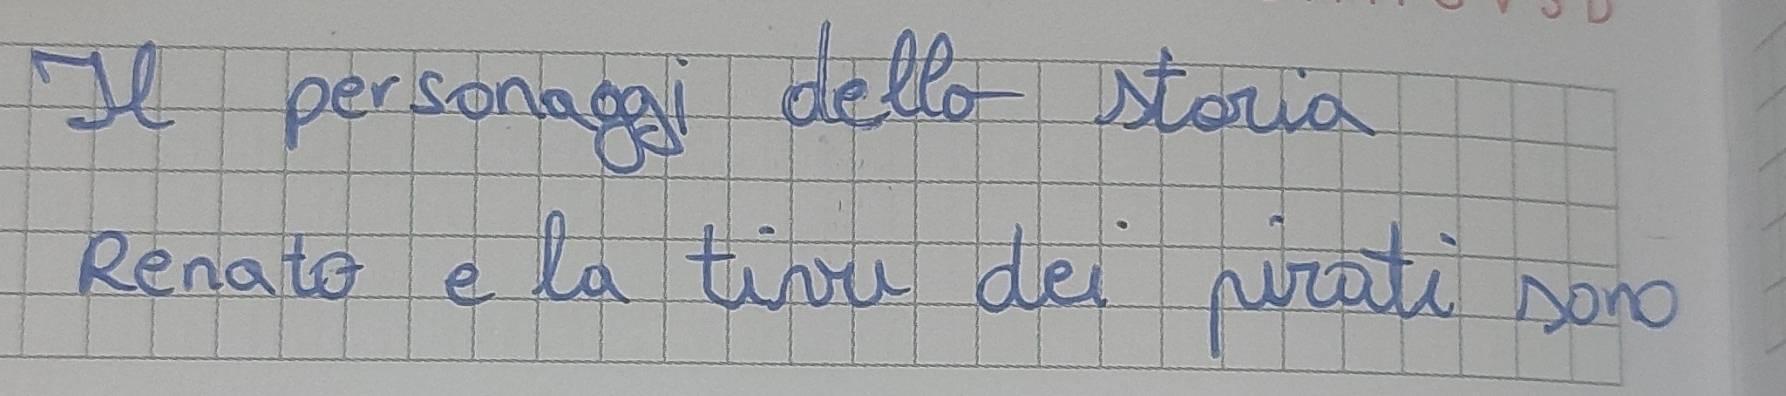 Il personaggi dello storia
Renato e la tivu dei pirati sono